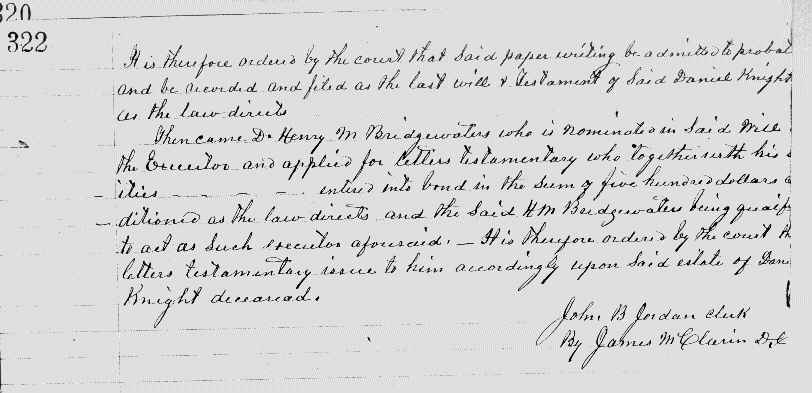 320
322
It is therefore ordered by the court that said paper writing be admitted to probat
and be recorded and filed as the last will & testament of Said Daniel Knight
as the law directs
Then came Dr Henry M Bridgewaters who is nominated in Said Will
the Executor and applied for letters testamentary who together with his s
ities _ _ _ _ entered into bond in the sum of five hundred dollars c
ditioned as the law directs and the Said H M Bridgewaters being qualif
to act as Such executor afouresaid. — It is therefore ordered by the court th
letters testamentary issue to him accordingly upon Said estate of Dani
Knight deceased.
John B Jordan Clerk
By James McClarin D.C